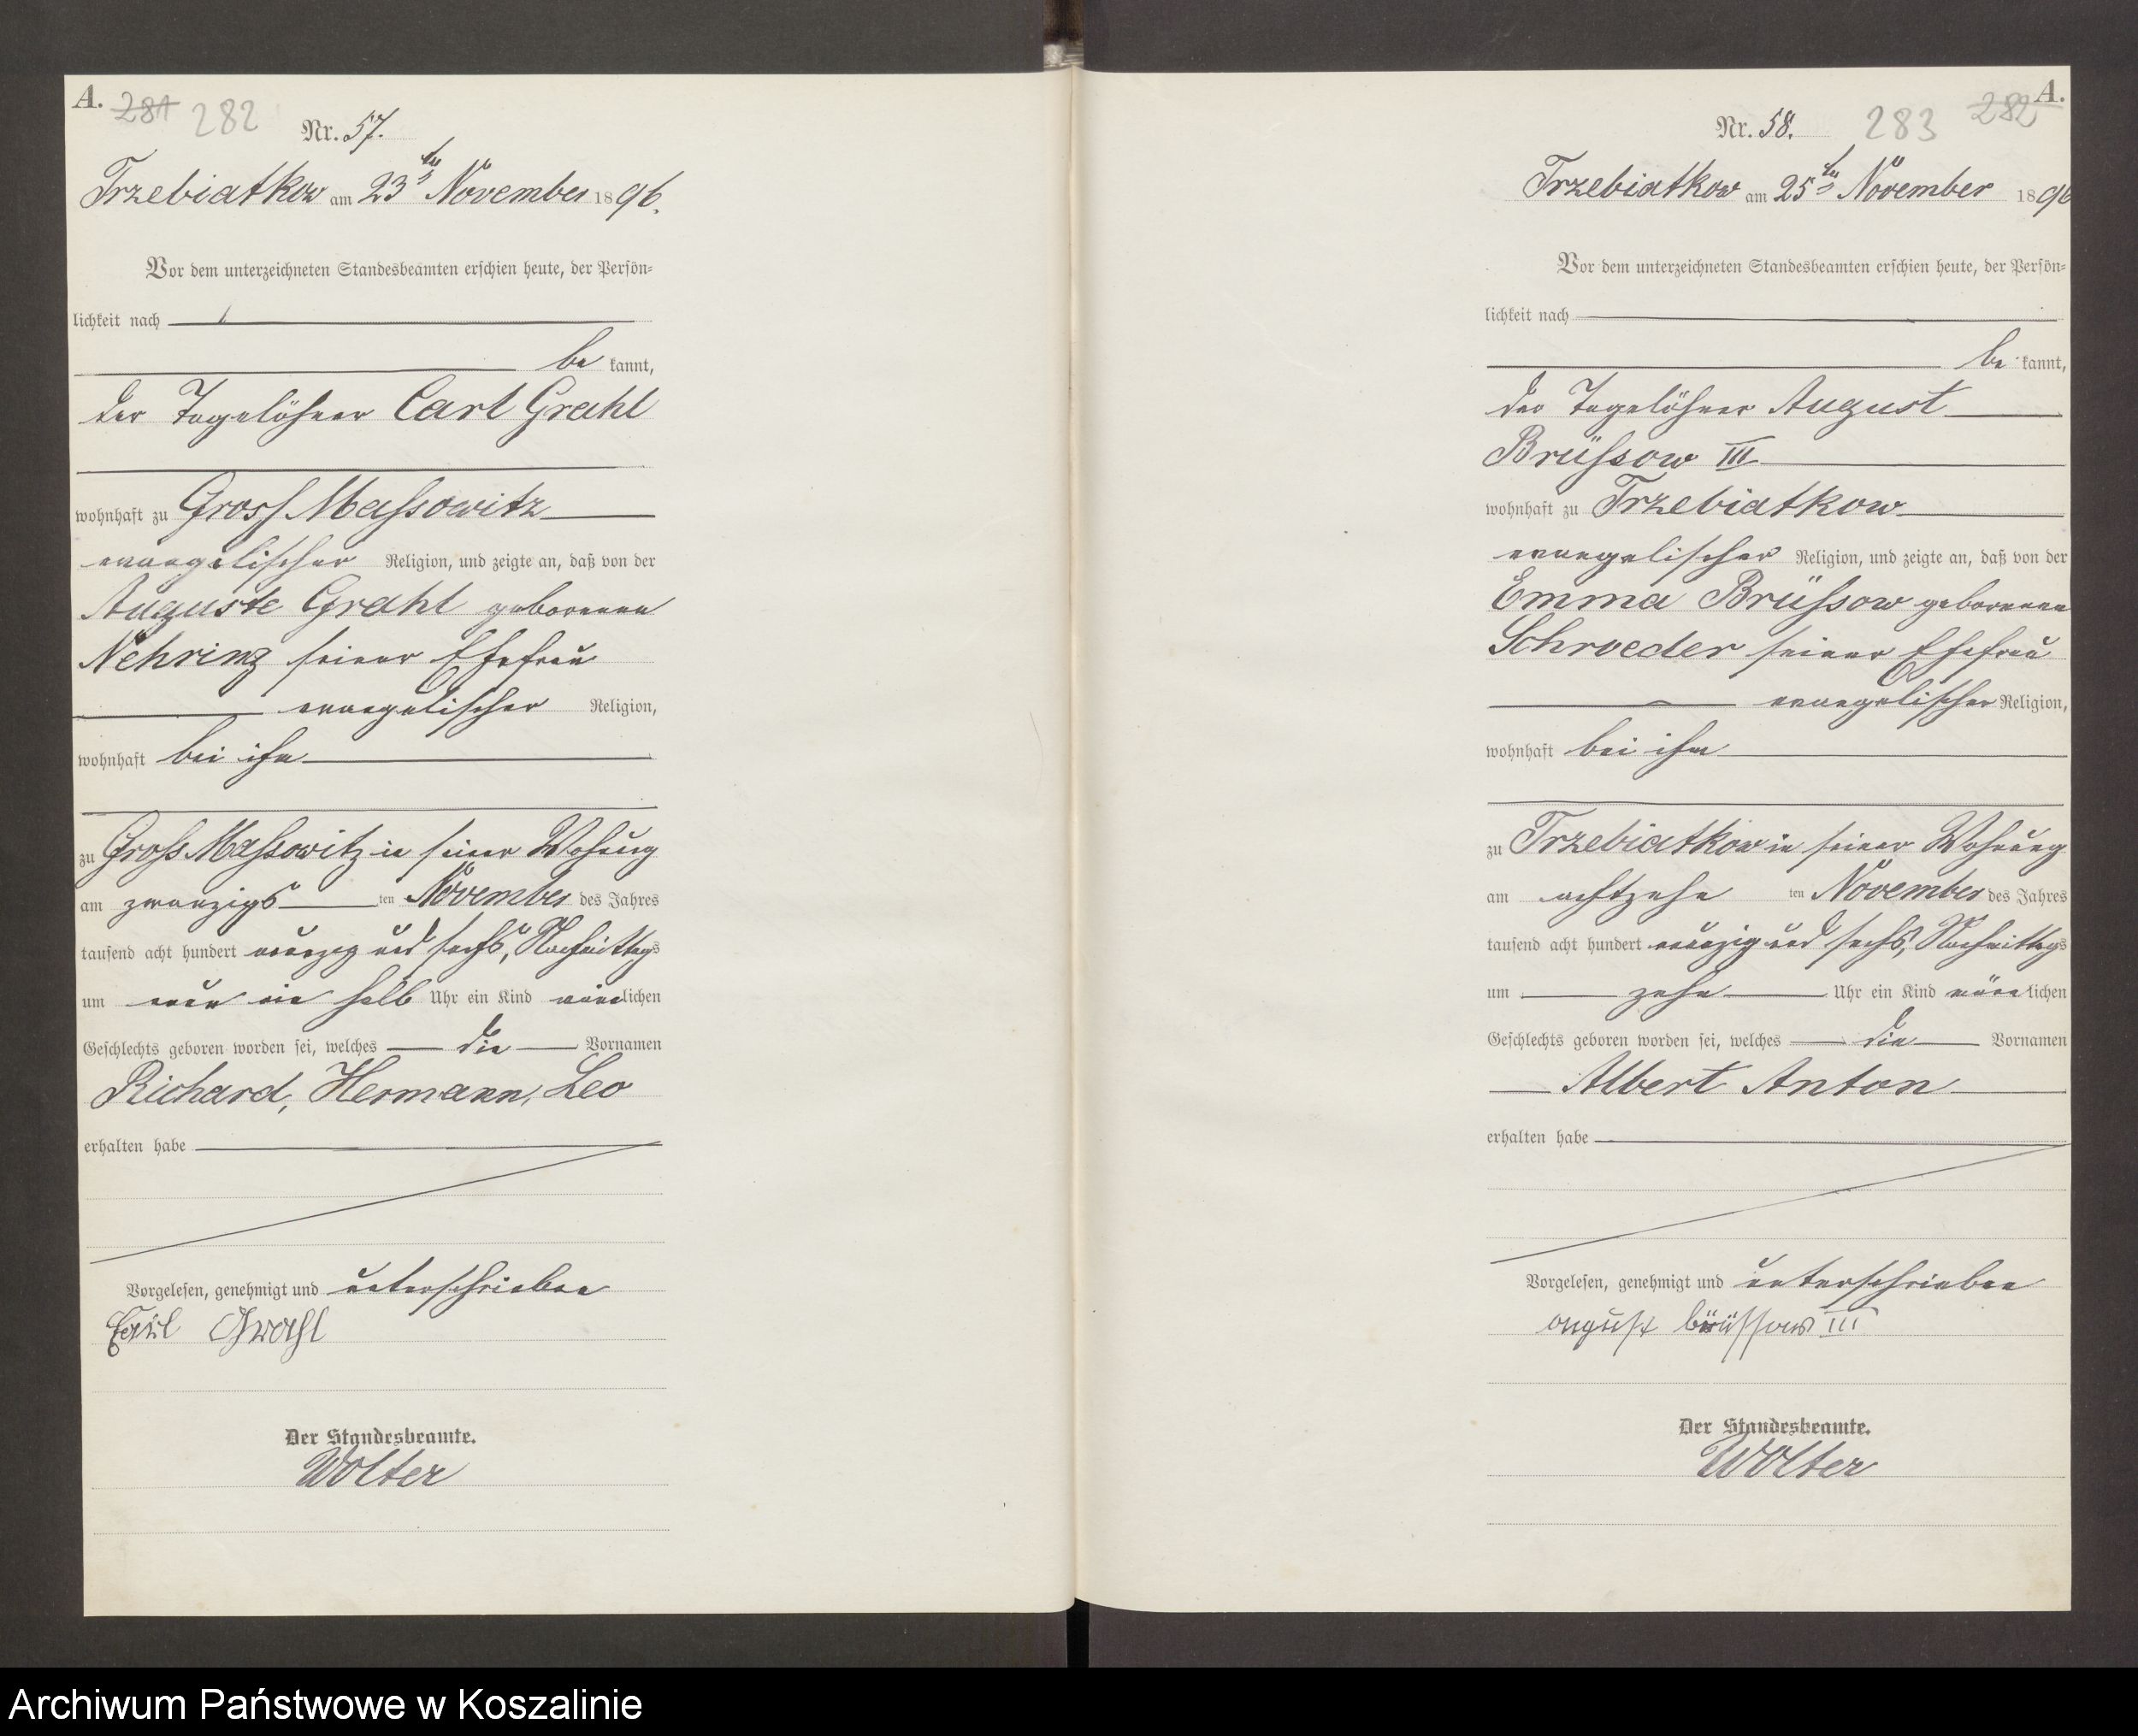 A.
281 282
Nr. 57.
Trzebiatkow am 23ten November 1896.
Vor dem unterzeichneten Standesbeamten erschien heute, der Persön=
lichkeit nach
be kannt,
der Tagelöhner Carl Grahl
wohnhaft zu Gross Massowitz
evangelischer Religion, und zeigte an, daß von der
Auguste Grahl geborenen
Nehring seiner Ehefrau
evangelischer Religion,
wohnhaft bei ihm
zu Gross Massowitz in seiner Wohnung
am zwanzigs ten November des Jahres
tausend acht hundert neunzig und sechs, Nachmittags
um neun ein halb Uhr ein Kind männlichen
Geschlechts geboren worden sei, welches die Vornamen
Richard, Hermann, Leo
erhalten habe
Vorgelesen, genehmigt und unterschrieben
Carl Grahl
Der Standesbeamte.
Wolter
A.
Nr. 58. 283 282
Trzebiatkow am 25ten November 1896
Vor dem unterzeichneten Standesbeamten erschien heute, der Persön=
lichkeit nach
be kannt,
der Tagelöhner August
Brüssow III
wohnhaft zu Trzebiatkow
evangelischer Religion, und zeigte an, daß von der
Emma Brüssow geborenen
Schroeder seiner Ehefrau
evangelischer Religion,
wohnhaft bei ihm
zu Trzebiatkow in seiner Wohnung
am achtzehn ten November des Jahres
tausend acht hundert neunzig und sechs, Nachmittags
um zehn Uhr ein Kind männlichen
Geschlechts geboren worden sei, welches die Vornamen
Albert Anton
erhalten habe
Vorgelesen, genehmigt und unterschrieben
august brüssow III
Der Standesbeamte.
Wolter
Archiwum Państwowe w Koszalinie